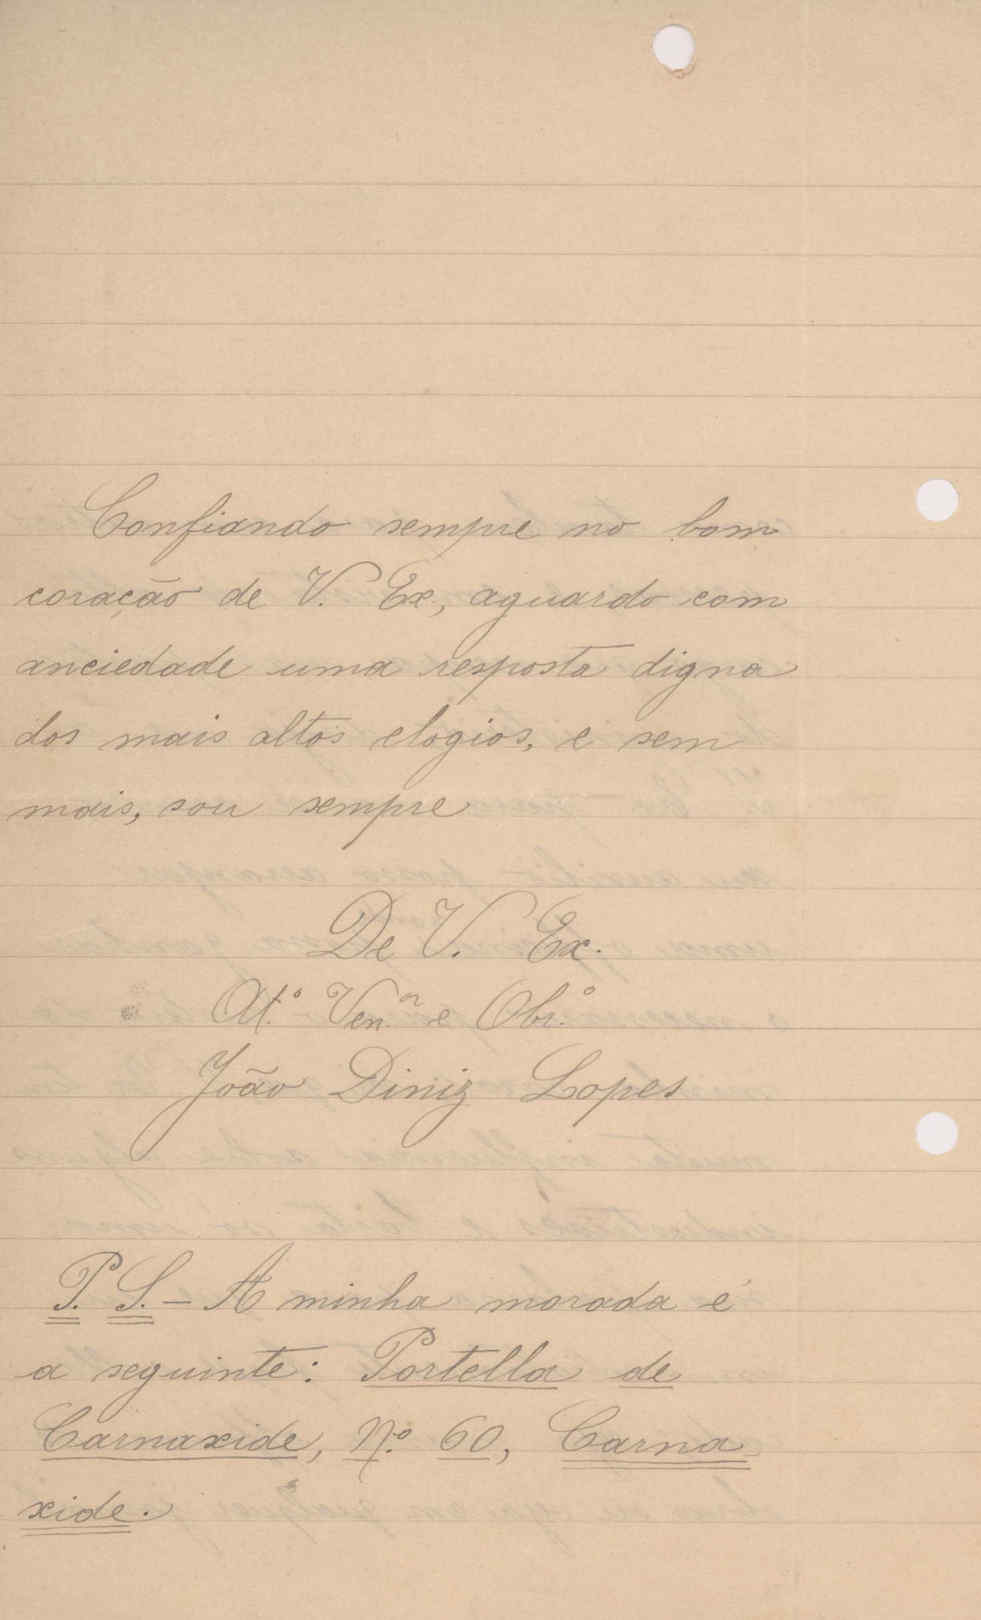 Confiando sempre no bom
coração de V. Ex., aguardo com
anciedade uma resposta digna
dos mais altos elogios, e sem
mais, sou sempre
De V. Ex.
At.º Ven.or e Obr.º
João Diniz Lopes
P. S. - A minha morada é
a seguinte: Portella de
Carnaxide, N.º 60, Carna
xide.